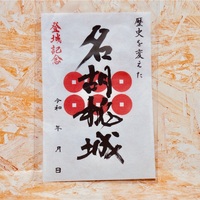 歴史を変えた
名胡桃城
登城記念
令和 年 月 日